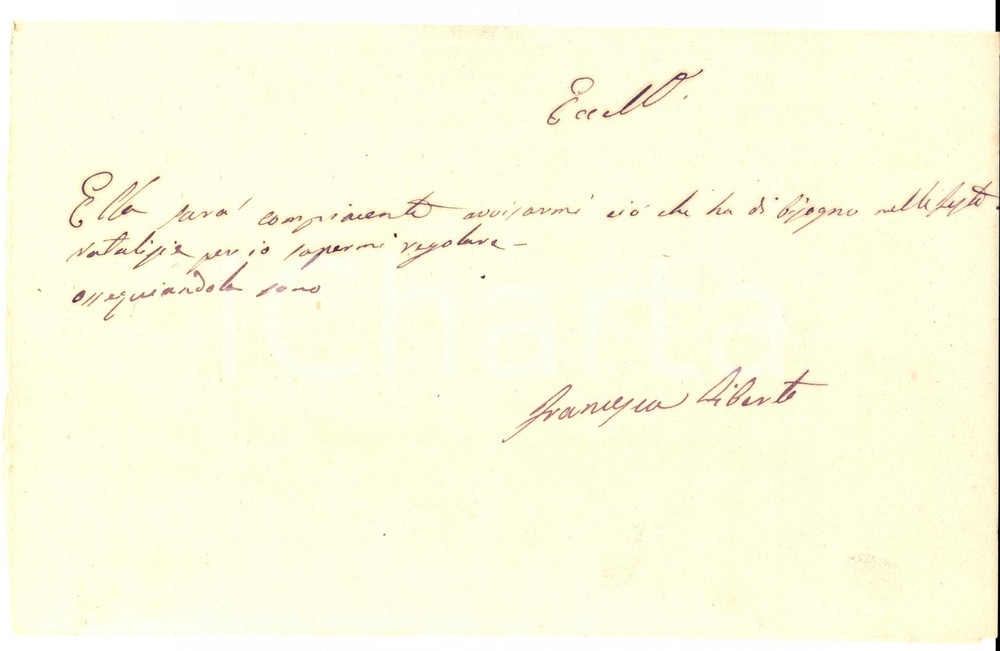 Eccll.
Ella sarà compiacente avvisarmi ciò che ha di bisogno nelle feste
natalizie per io sapermi regolare –
ossequiandola sono
Francesca Liberto
iCharta